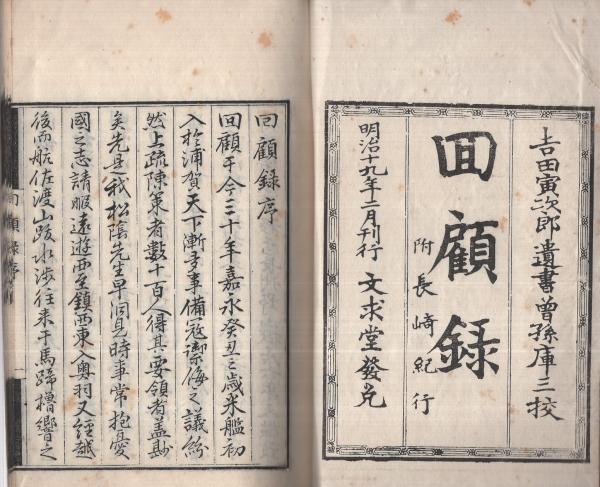 吉田寅次郎遺書曽孫庫三挍
回顧録
附長崎紀行
明治十九年二月刊行 文求堂發兌
回顧録序
回顧于今三十年嘉永癸丑之歳米艦初
入於浦賀天下漸多事備寇禦侮之議紛
然上疏陳策者數十百人得其要領者盖尠
矣先是我松陰先生早洞見時事常抱憂
國之志請暇遠遊西至鎮西東入奥羽又經越
後而航佐渡山跋水渉往来于馬蹄櫓響之
回顧録序